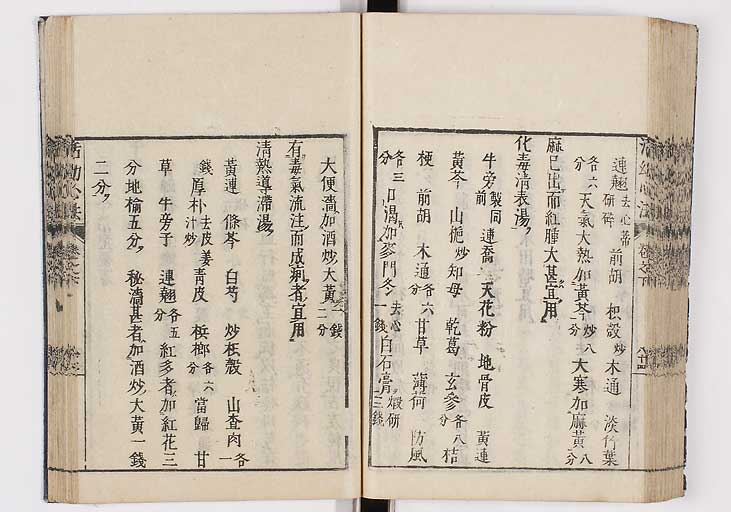 活幼心法 卷之六
連翹去心蒂研碎 前胡 枳殼炒 木通 淡竹葉
各六分 天氣大熱加黃芩炒八分 大寒加麻黃八分
麻已出而紅腫太甚宜用
化毒清表湯
牛旁製同前 連喬 天花粉 地骨皮 黃連
黃芩 山梔炒 知母 乾葛 玄參各八分 桔
梗 前胡 木通各六分 甘草 薄荷 防風
各三分 口渴加麥門冬去心一錢 白石膏煅研三錢
大便濇加酒炒大黃一錢二分
有毒氣流注而成痢者宜用
清熱導滯湯
黃連 條芩 白芍 炒枳殼 山查肉各一
錢 厚朴去皮姜汁炒 青皮 梹榔各六分 當歸 甘
草 牛旁子 連翹各五分 紅多者加紅花三
分地榆五分 秘濇甚者加酒炒大黃一錢
二分
活幼心法 卷之六